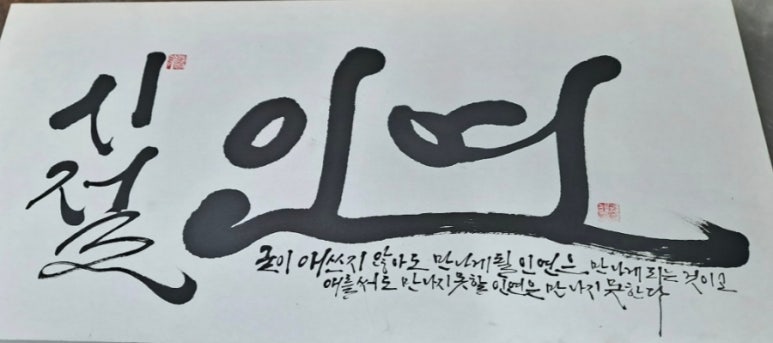 시절
인연
굳이 애쓰지 않아도 만나게 될 인연은 만나게 되는 것이고
애를 써도 만나지 못할 인연은 만나지 못한다